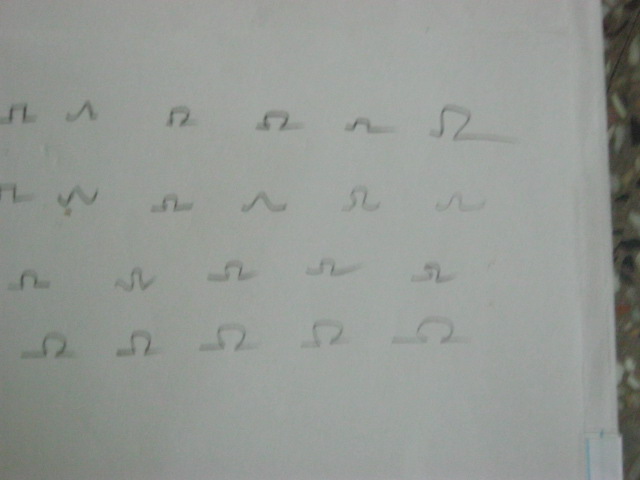 Ω Ω Ω Ω Ω Ω
Ω Ω Ω Ω Ω Ω
Ω Ω Ω Ω Ω
Ω Ω Ω Ω Ω